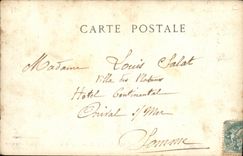 CARTE POSTALE
Madame Louis Salat
Villa les
Hotel Continental
s/Mer
Somme